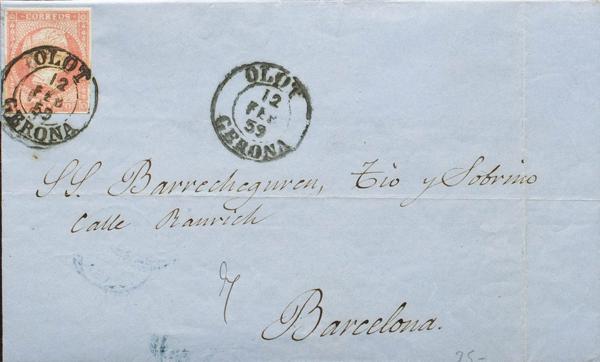 CORREOS
OLOT
12
FEB
59
GERONA
OLOT
12
FEB
59
GERONA
SS. Barrecheguren, Tio y Sobrino
Calle Ranrich
Barcelona.
25-